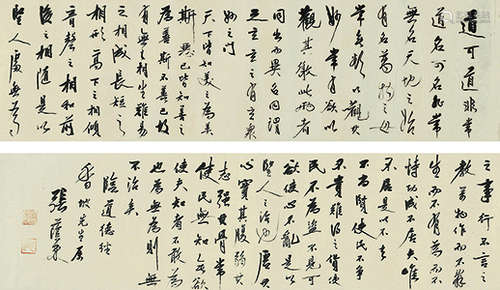 道可道非常
道名可名非常
無名天地之始
有名萬物之母
常無欲以觀其
妙常有欲以
觀其徼此兩者
同出而異名同謂
之玄玄之又玄衆
妙之門
天下皆知美之為美
斯惡已皆知善之
為善斯不善已故
有無相生難易
之相成長短之
相形高下之相傾
音聲之相和前
後之相隨是以
聖人處無為
之事行不言之
教萬物作而不辭
生而不有為而不
恃功成不居夫唯
不居是以不去
不尚賢使民不爭
不貴難得之貨使
民不為盜不見可
欲使心不亂是以
聖人之治虛其心
實其腹弱其
志強其骨常
使民無知無欲
使夫知者不敢為
也為無為則無
不治矣
臨道德經
香坡先生屬
張蔭